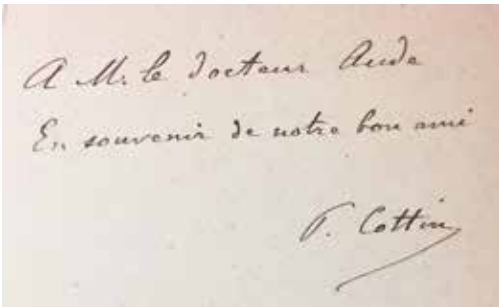 A M. le docteur Aude
En souvenir de notre bon ami
P. Cottin